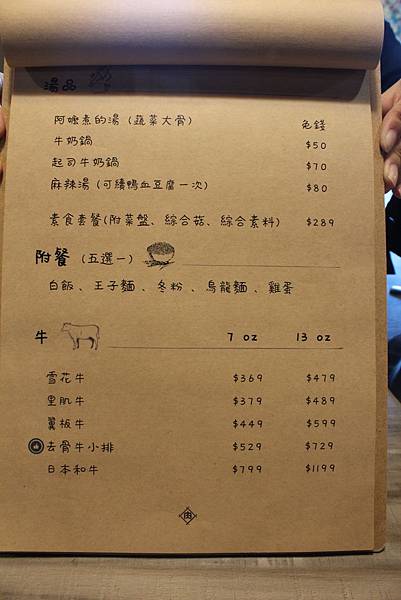 湯品
阿嬤煮的湯 (蔬菜大骨) 免錢
牛奶鍋 $50
起司牛奶鍋 $70
麻辣湯 (可續鴨血豆腐一次) $80
素食套餐(附菜盤、綜合菇、綜合素料) $289
附餐 (五選一)
白飯、王子麵、冬粉、烏龍麵、雞蛋
牛 7 oz 13 oz
雪花牛 $369 $479
里肌牛 $379 $489
翼板牛 $449 $599
去骨牛小排 $529 $729
日本和牛 $799 $1199
肉